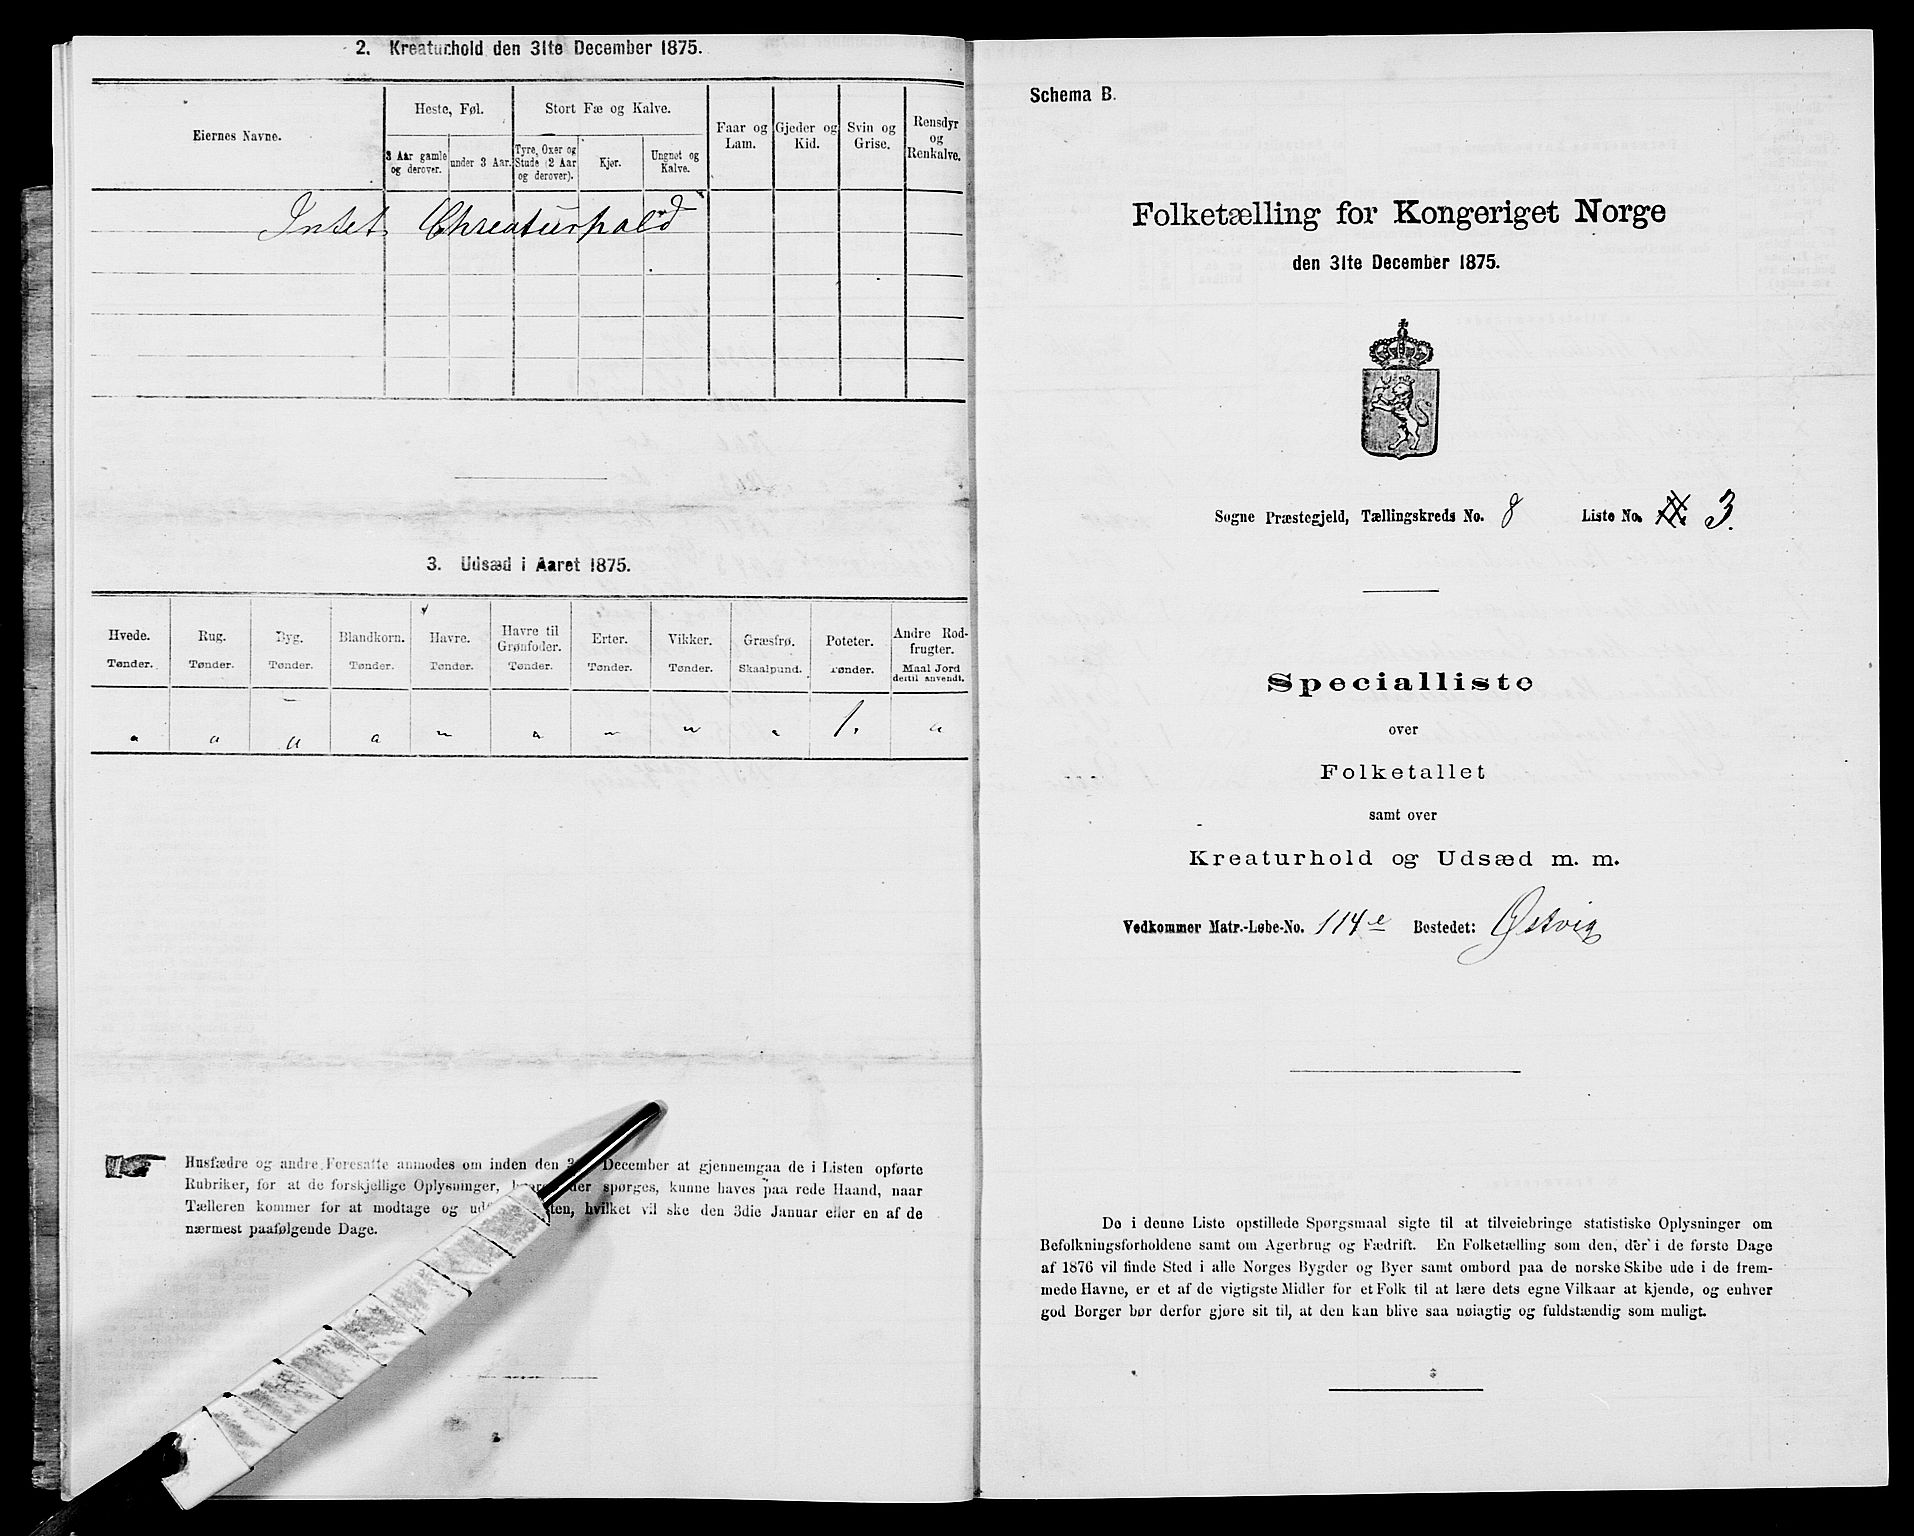 2. Kreaturhold den 31te December 1875.
Eiernes Navne.
Heste, Føl.
3 Aar gamle og derover.
under 3 Aar.
Stort Fæ og Kalve.
Tyre, Oxer og Stude (2 Aar og derover).
Kjør.
Ungnøt og Kalve.
Faar og Lam.
Gjeder og Kid.
Svin og Grise.
Rensdyr og Renkalve.
Intet Chreaturhold
3. Udsæd i Aaret 1875.
Hvede. Tønder.
Rug. Tønder.
Byg. Tønder.
Blandkorn. Tønder.
Havre. Tønder.
Havre til Grønfoder. Tønder.
Erter. Tønder.
Vikker. Tønder.
Græsfrø. Skaalpund.
Poteter. Tønder.
Andre Rodfrugter. Maal Jord dertil anvendt.
" " " " " " " " " 1. "
Husfædre og andre Foresatte anmodes om inden den December at gjennemgaa de i Listen opførte
Rubriker, for at de forskjellige Oplysninger, der spørges, kunne haves paa rede Haand, naar
Tælleren kommer for at modtage og hvilket vil ske den 3die Januar eller en af de
nærmest paafølgende Dage.
Schema B.
Folketælling for Kongeriget Norge
den 31te December 1875.
Sogne Præstegjeld, Tællingskreds No. 8 Liste No. 3.
Specialliste
over
Folketallet
samt over
Kreaturhold og Udsæd m. m.
Vedkommer Matr.-Løbe-No. 114e Bostedet: Østvig
De i denne Liste opstillede Spørgsmaal sigte til at tilveiebringe statistiske Oplysninger om
Befolkningsforholdene samt om Agerbrug og Fædrift. En Folketælling som den, der i de første Dage
af 1876 vil finde Sted i alle Norges Bygder og Byer samt ombord paa de norske Skibe ude i de frem-
mede Havne, er et af de vigtigste Midler for et Folk til at lære dets egne Vilkaar at kjende, og enhver
god Borger bør derfor gjøre sit til, at den kan blive saa nøiagtig og fuldstændig som muligt.